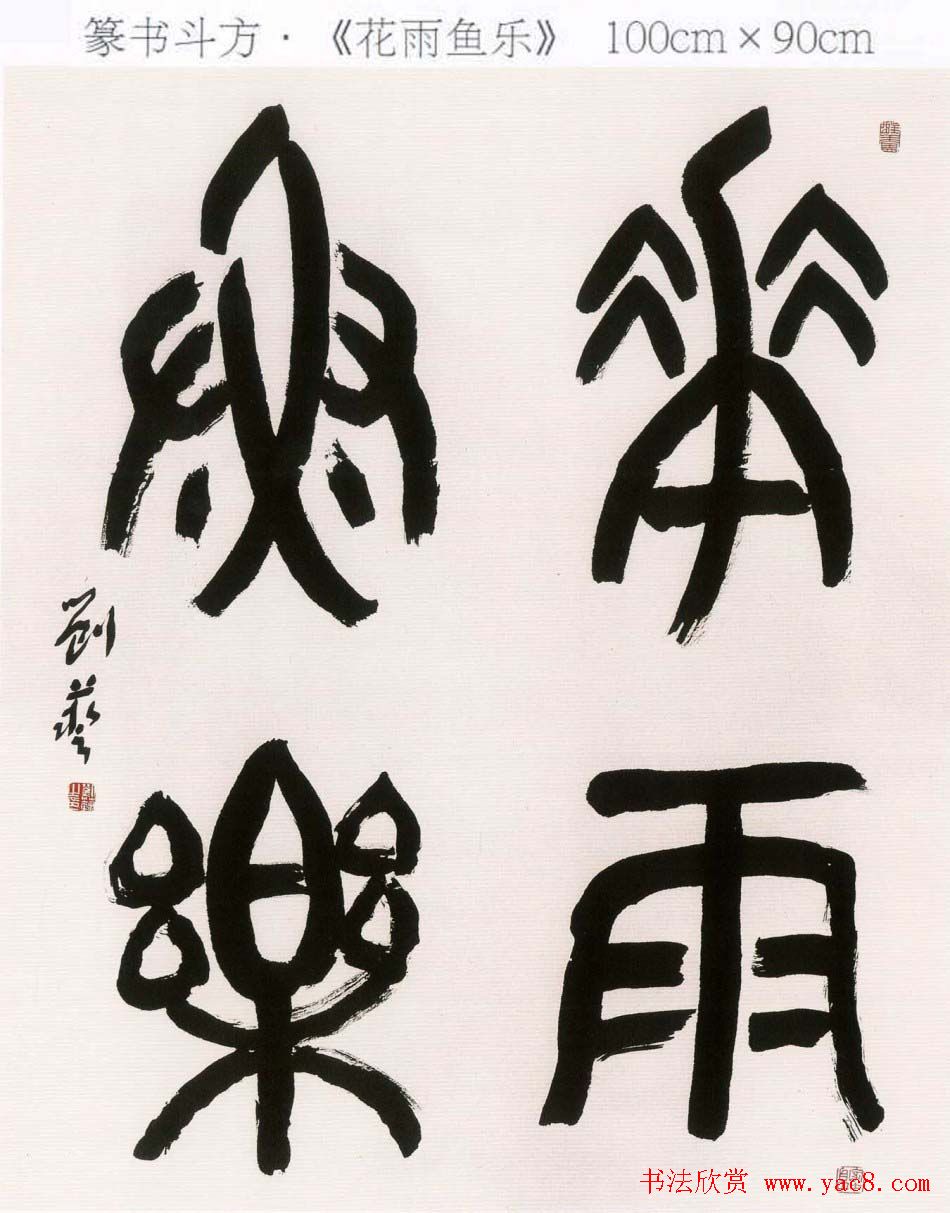 篆书斗方·《花雨鱼乐》 100cm×90cm
華雨
魚樂
劉藝
书法欣赏 www.yac8.com